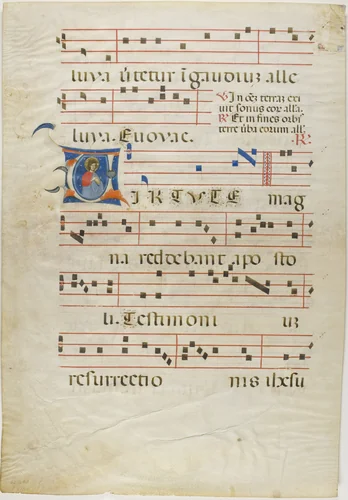 luya ūtetur ī gaudiuʒ alle
luya. Euouae.
℣ In oēʒ terraʒ exi
uit sonus eoꝝ all'a.
℟ Et in fines orbꝭ
terre ūba eorum all'.
℟.
VIRTUTE mag
na reddebant apo sto
li. Testimoni uʒ
resurrectio nis ihxsu